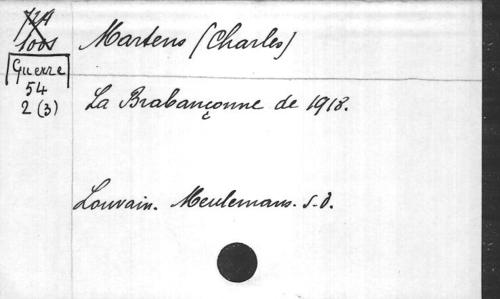 1005
Guerre
54
2 (3)
Martens (Charles)
La Brabançonne de 1918.
Louvain. Meulemans. s.d.